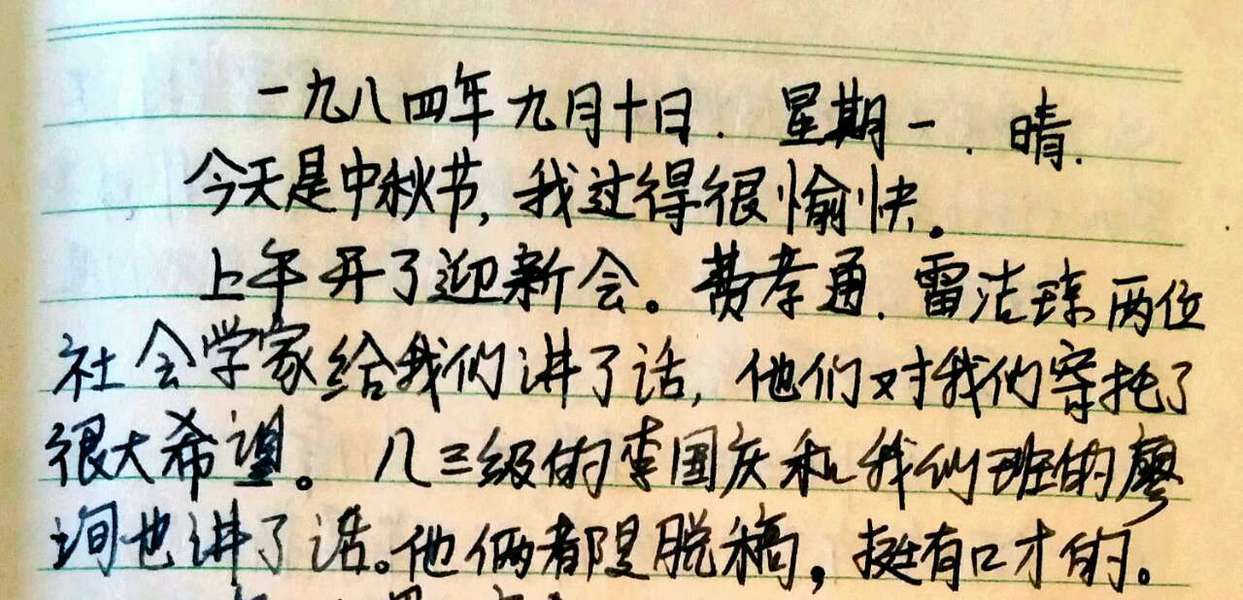 一九八四年九月十日. 星期一. 晴.
今天是中秋节,我过得很愉快。
上午开了迎新会。费孝通.雷洁琼两位
社会学家给我们讲了话,他们对我们寄托了
很大希望。八三级的李国庆和我们班的廖
询也讲了话。他俩都是脱稿,挺有口才的。